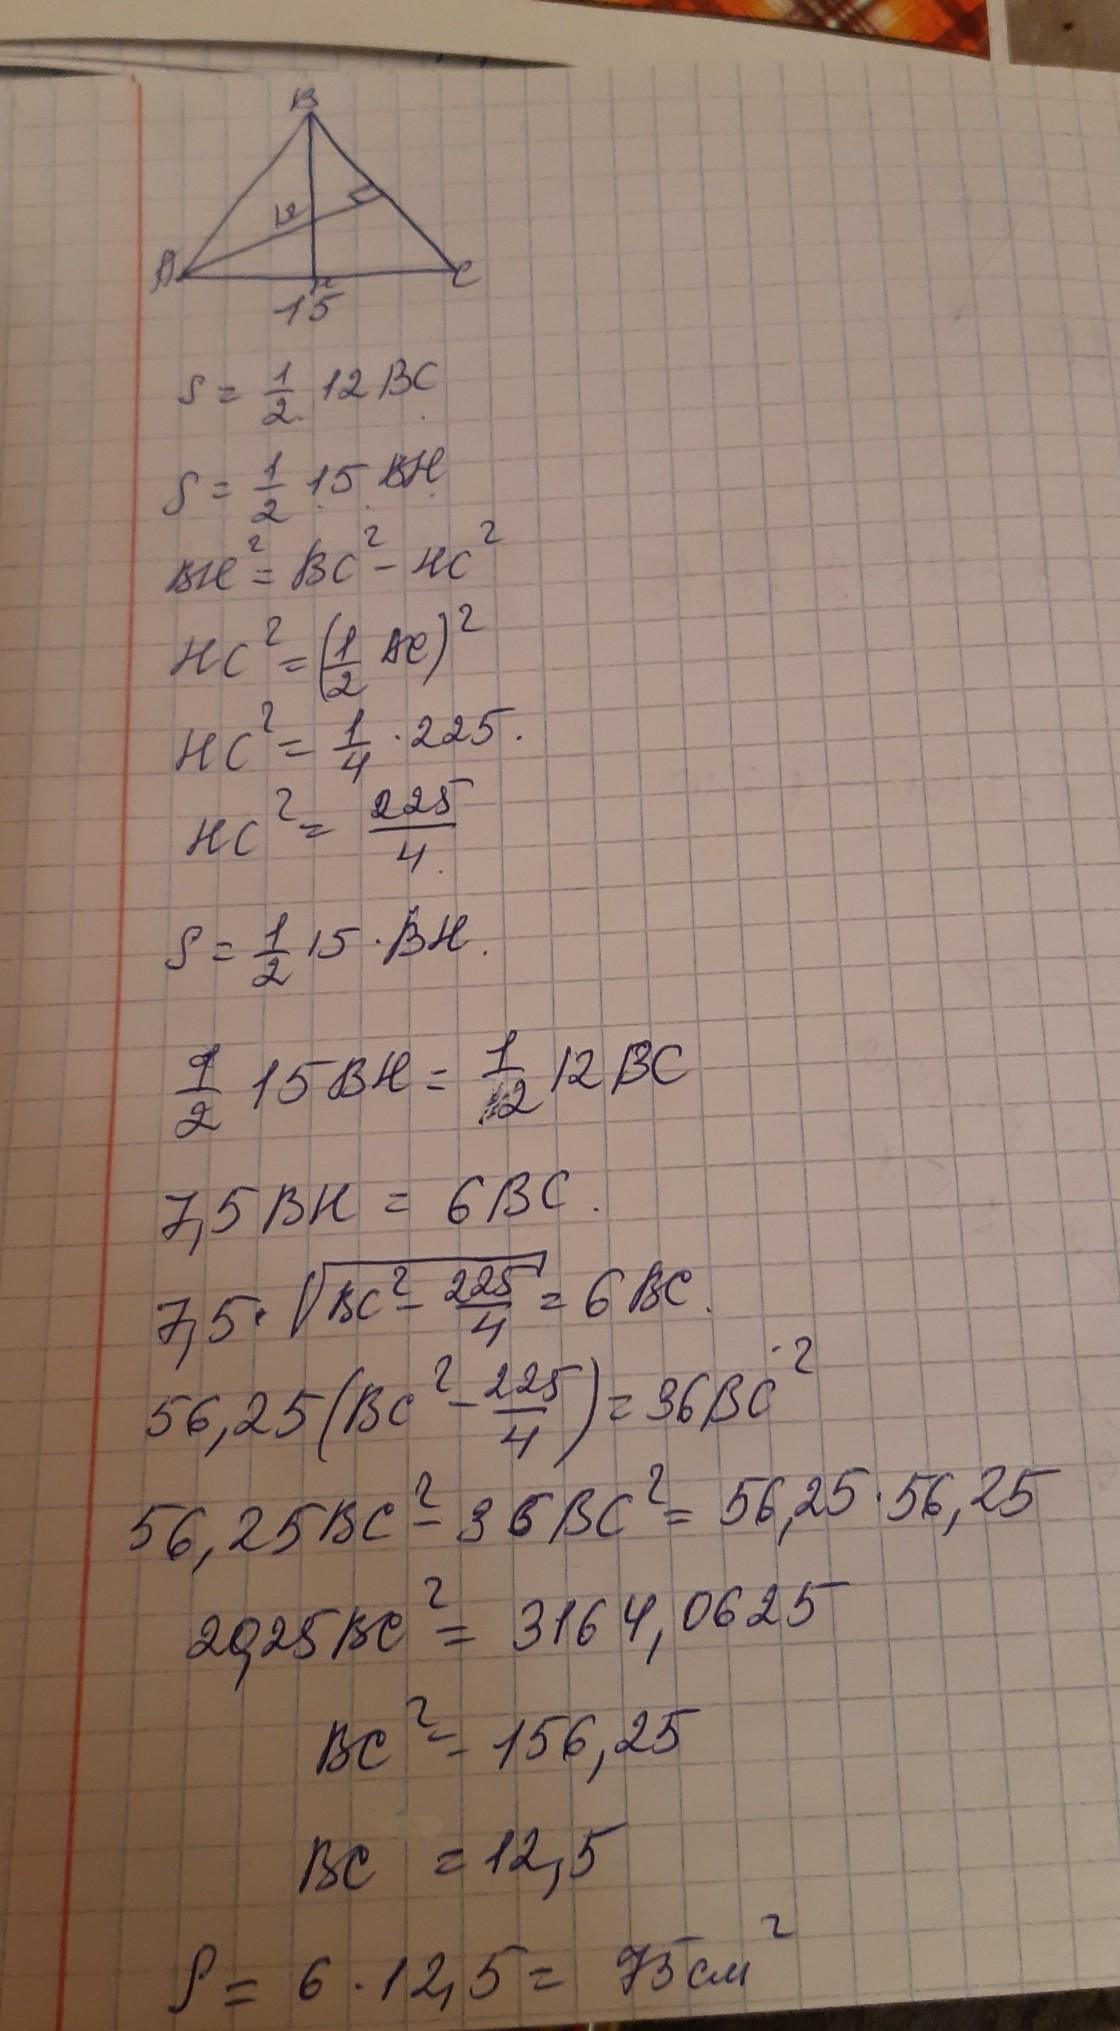 B
12
A H C
15
S = 1/2 12 BC
S = 1/2 · 15 · BH
BH² = BC² - HC²
HC² = (1/2 AC)²
HC² = 1/4 · 225.
HC² = 225/4.
S = 1/2 15 · BH.
1/2 15BH = 1/2 12BC
7,5BH = 6BC.
7,5 · √(BC² - 225/4) = 6BC.
56,25(BC² - 225/4) = 36BC²
56,25BC² - 36BC² = 56,25 · 56,25
20,25BC² = 3164,0625
BC² = 156,25
BC = 12,5
S = 6 · 12,5 = 75см²